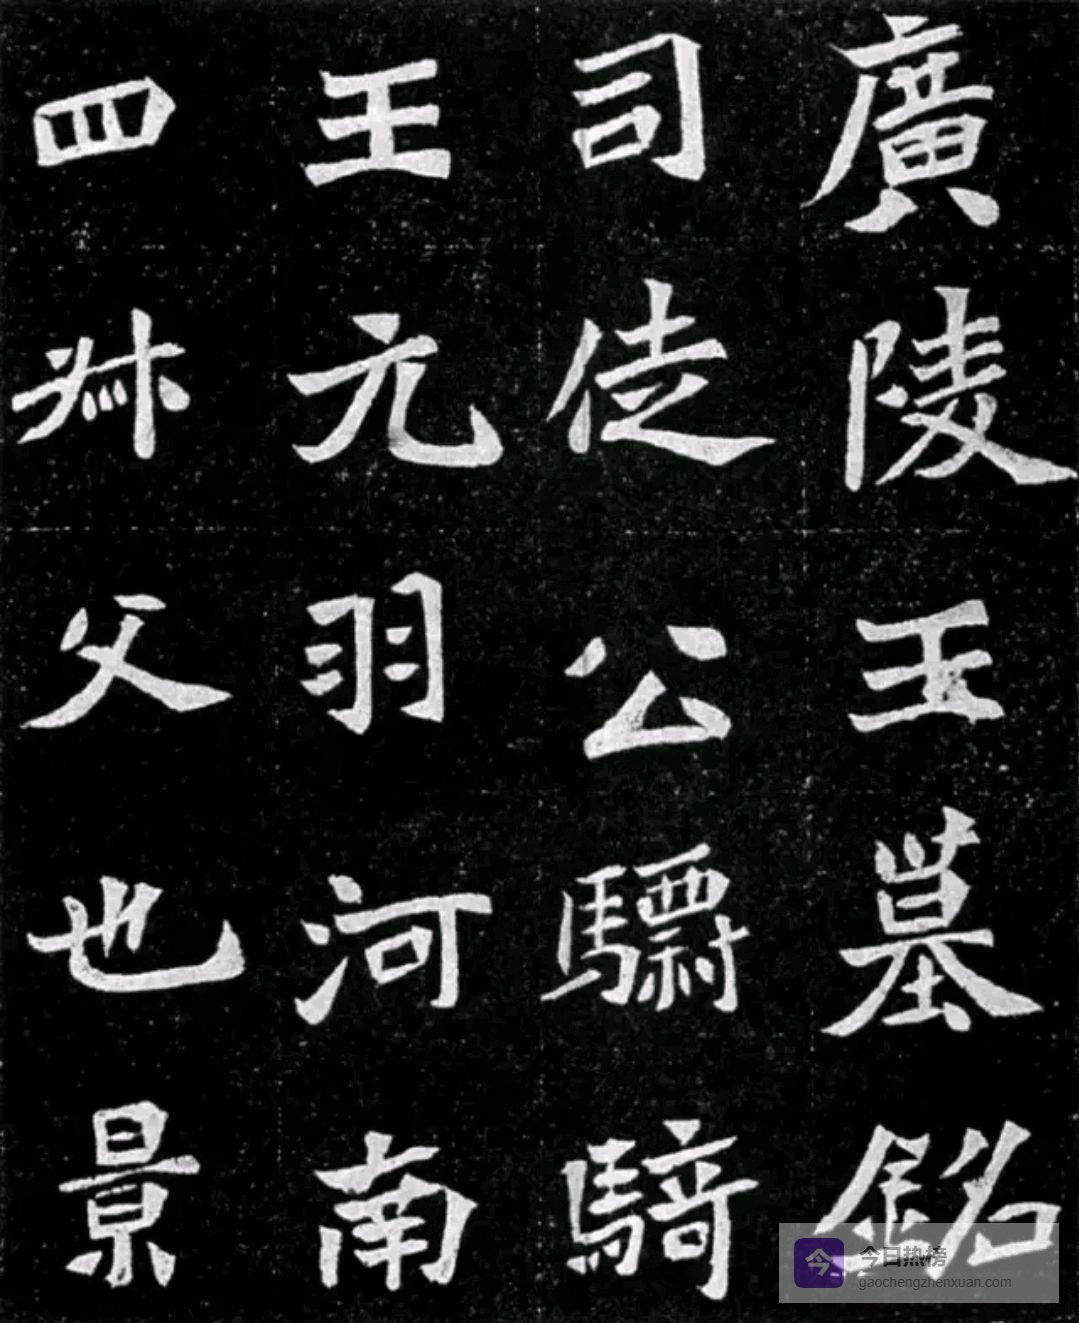 廣陵王墓銘
司徒公驃騎
王元羽河南
四叔父也景
今 今日热榜
gaochengzhenxuan.com